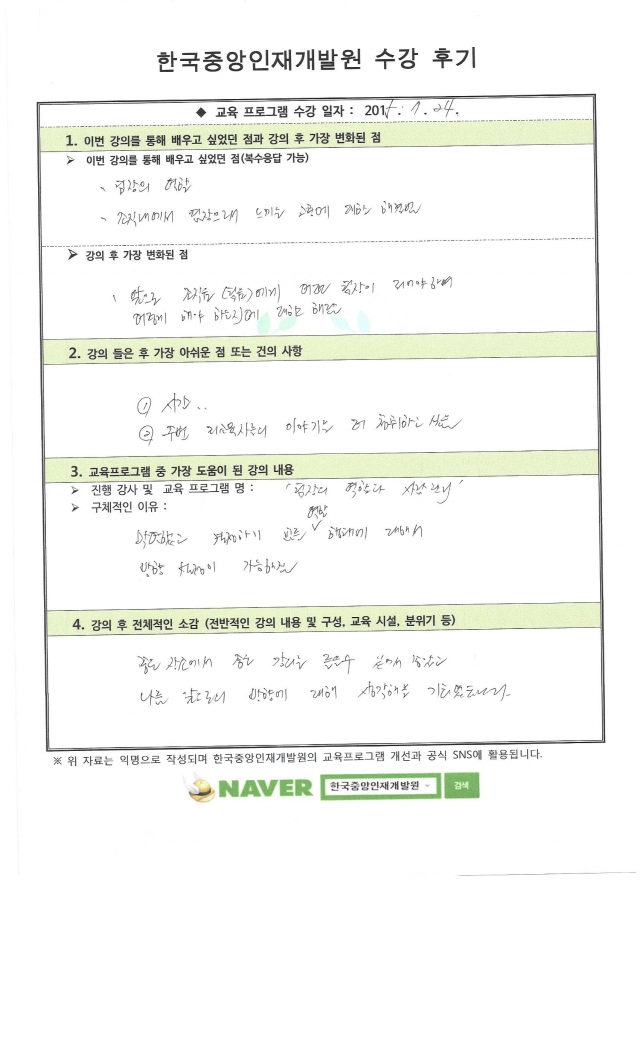 한국중앙인재개발원 수강 후기
◆ 교육 프로그램 수강 일자 : 2015. 1. 24.
1. 이번 강의를 통해 배우고 싶었던 점과 강의 후 가장 변화된 점
➢ 이번 강의를 통해 배우고 싶었던 점(복수응답 가능)
、팀장의 역할
、조직내에서 팀장으로서 느끼는 고충에 대한 해결법
➢ 강의 후 가장 변화된 점
、앞으로 조직원(팀원)에게 어떤 팀장이 되어야 하며
어떻게 해야 하는지에 대한 해답
2. 강의 들은 후 가장 아쉬운 점 또는 건의 사항
① 시간..
② 주변 교육사들의 이야기를 더 청취하고 싶음
3. 교육프로그램 중 가장 도움이 된 강의 내용
➢ 진행 강사 및 교육 프로그램 명 : '팀장의 역할과 시간관리'
➢ 구체적인 이유 :
역할
막연하고 모르는 형태에 대해서
방향 설정이 가능하였음
4. 강의 후 전체적인 소감 (전반적인 강의 내용 및 구성, 교육 시설, 분위기 등)
좋은 장소에서 좋은 강의를 들을수 있어서 좋았고
나름 앞으로의 방향에 대해 생각해볼 기회였습니다.
※ 위 자료는 익명으로 작성되며 한국중앙인재개발원의 교육프로그램 개선과 공식 SNS에 활용됩니다.
NAVER 한국중앙인재개발원 검색